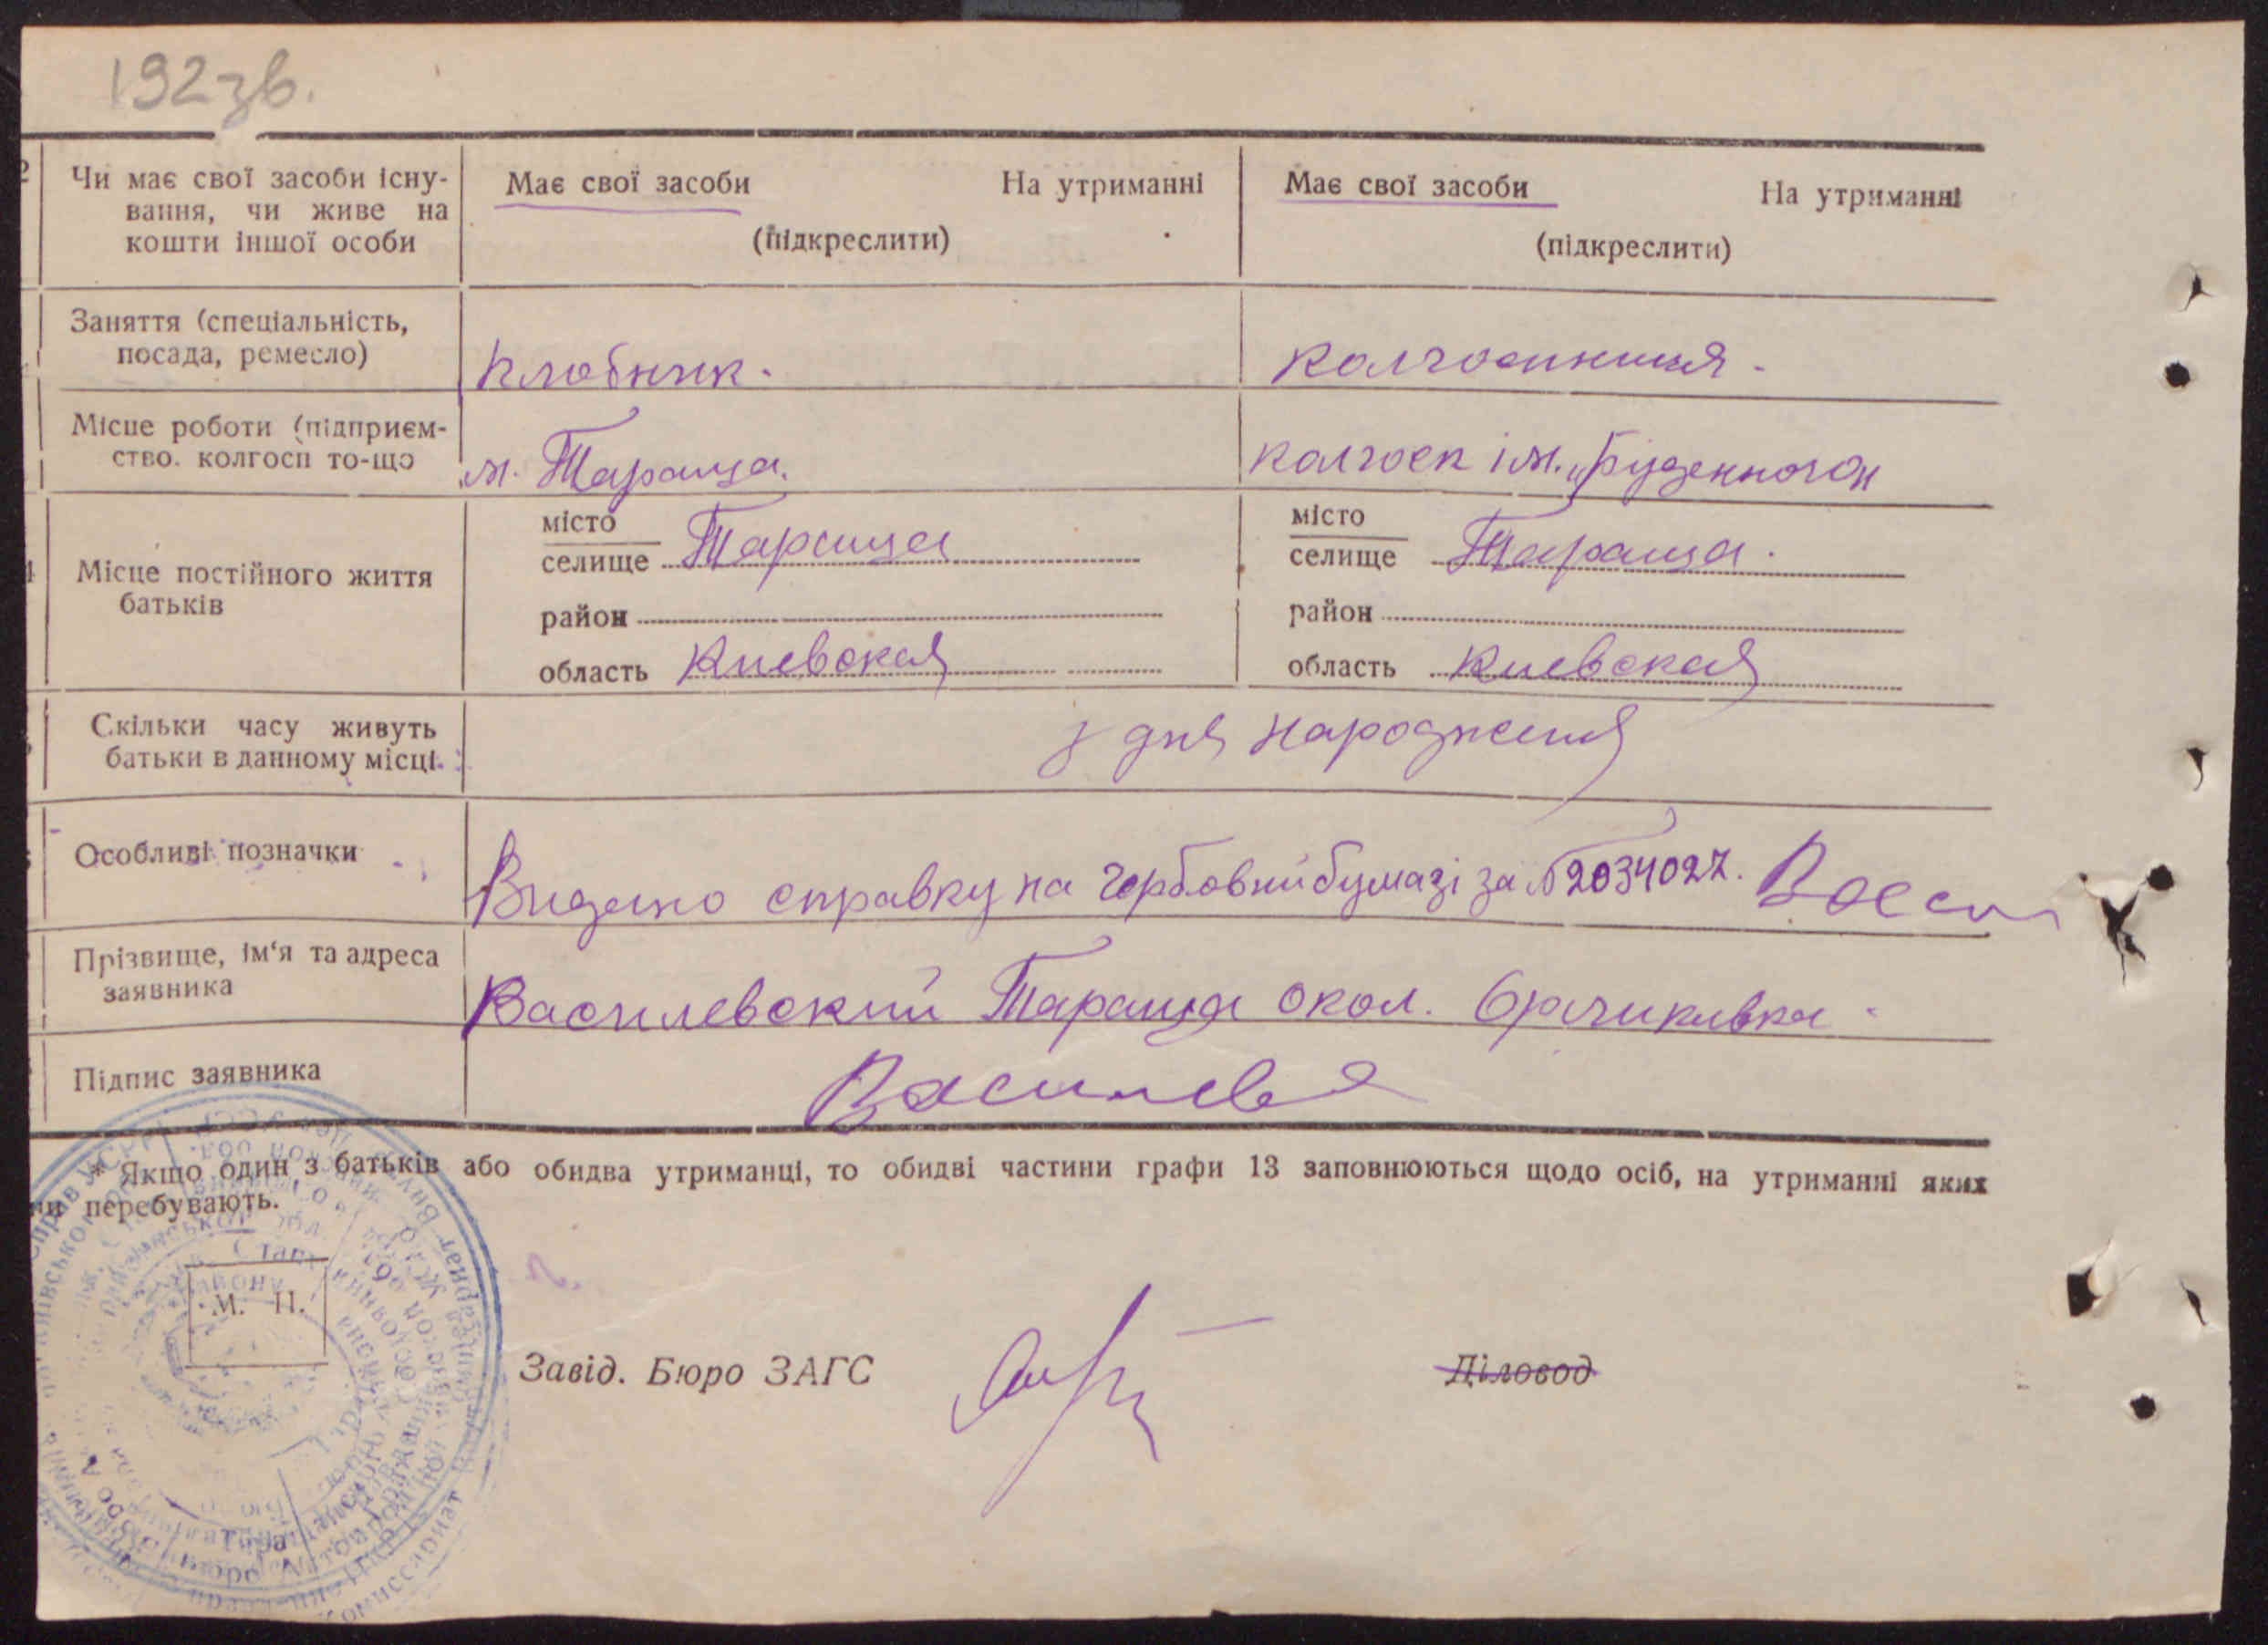 192зв.
Чи має свої засоби існу-
вання, чи живе на
кошти іншої особи
Має свої засоби На утриманні
(підкреслити)
Має свої засоби На утриманні
(підкреслити)
Заняття (спеціальність,
посада, ремесло)
колгоспниця.
Місце роботи (підприєм-
ство. колгосп то-що
м. Тараща.
колгосп ім. „Буденного"
Місце постійного життя
батьків
місто
селище Тараща
район
область Киевская
місто
селище Тараща.
район
область Киевская
Скільки часу живуть
батьки в данному місці.
з дня народження
Особливі позначки
Видано справку на гербовий бумазі за № 2034027.
Прізвище, ім'я та адреса
заявника
Василевский Тараща окол.
Підпис заявника
* Якщо один з батьків або обидва утриманці, то обидві частини графи 13 заповнюються щодо осіб, на утриманні яких
перебувають.
М. П.
Завід. Бюро ЗАГС
Діловод